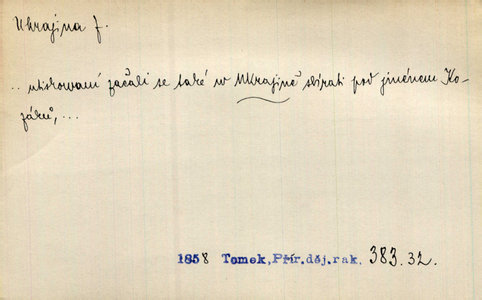 Ukrajina f.
.. utiskovaní začali se také w Ukrajině sbírati pod jménem Ko-
záků, ...
1858 Tomek, Přír.děj.rak. 383.32.